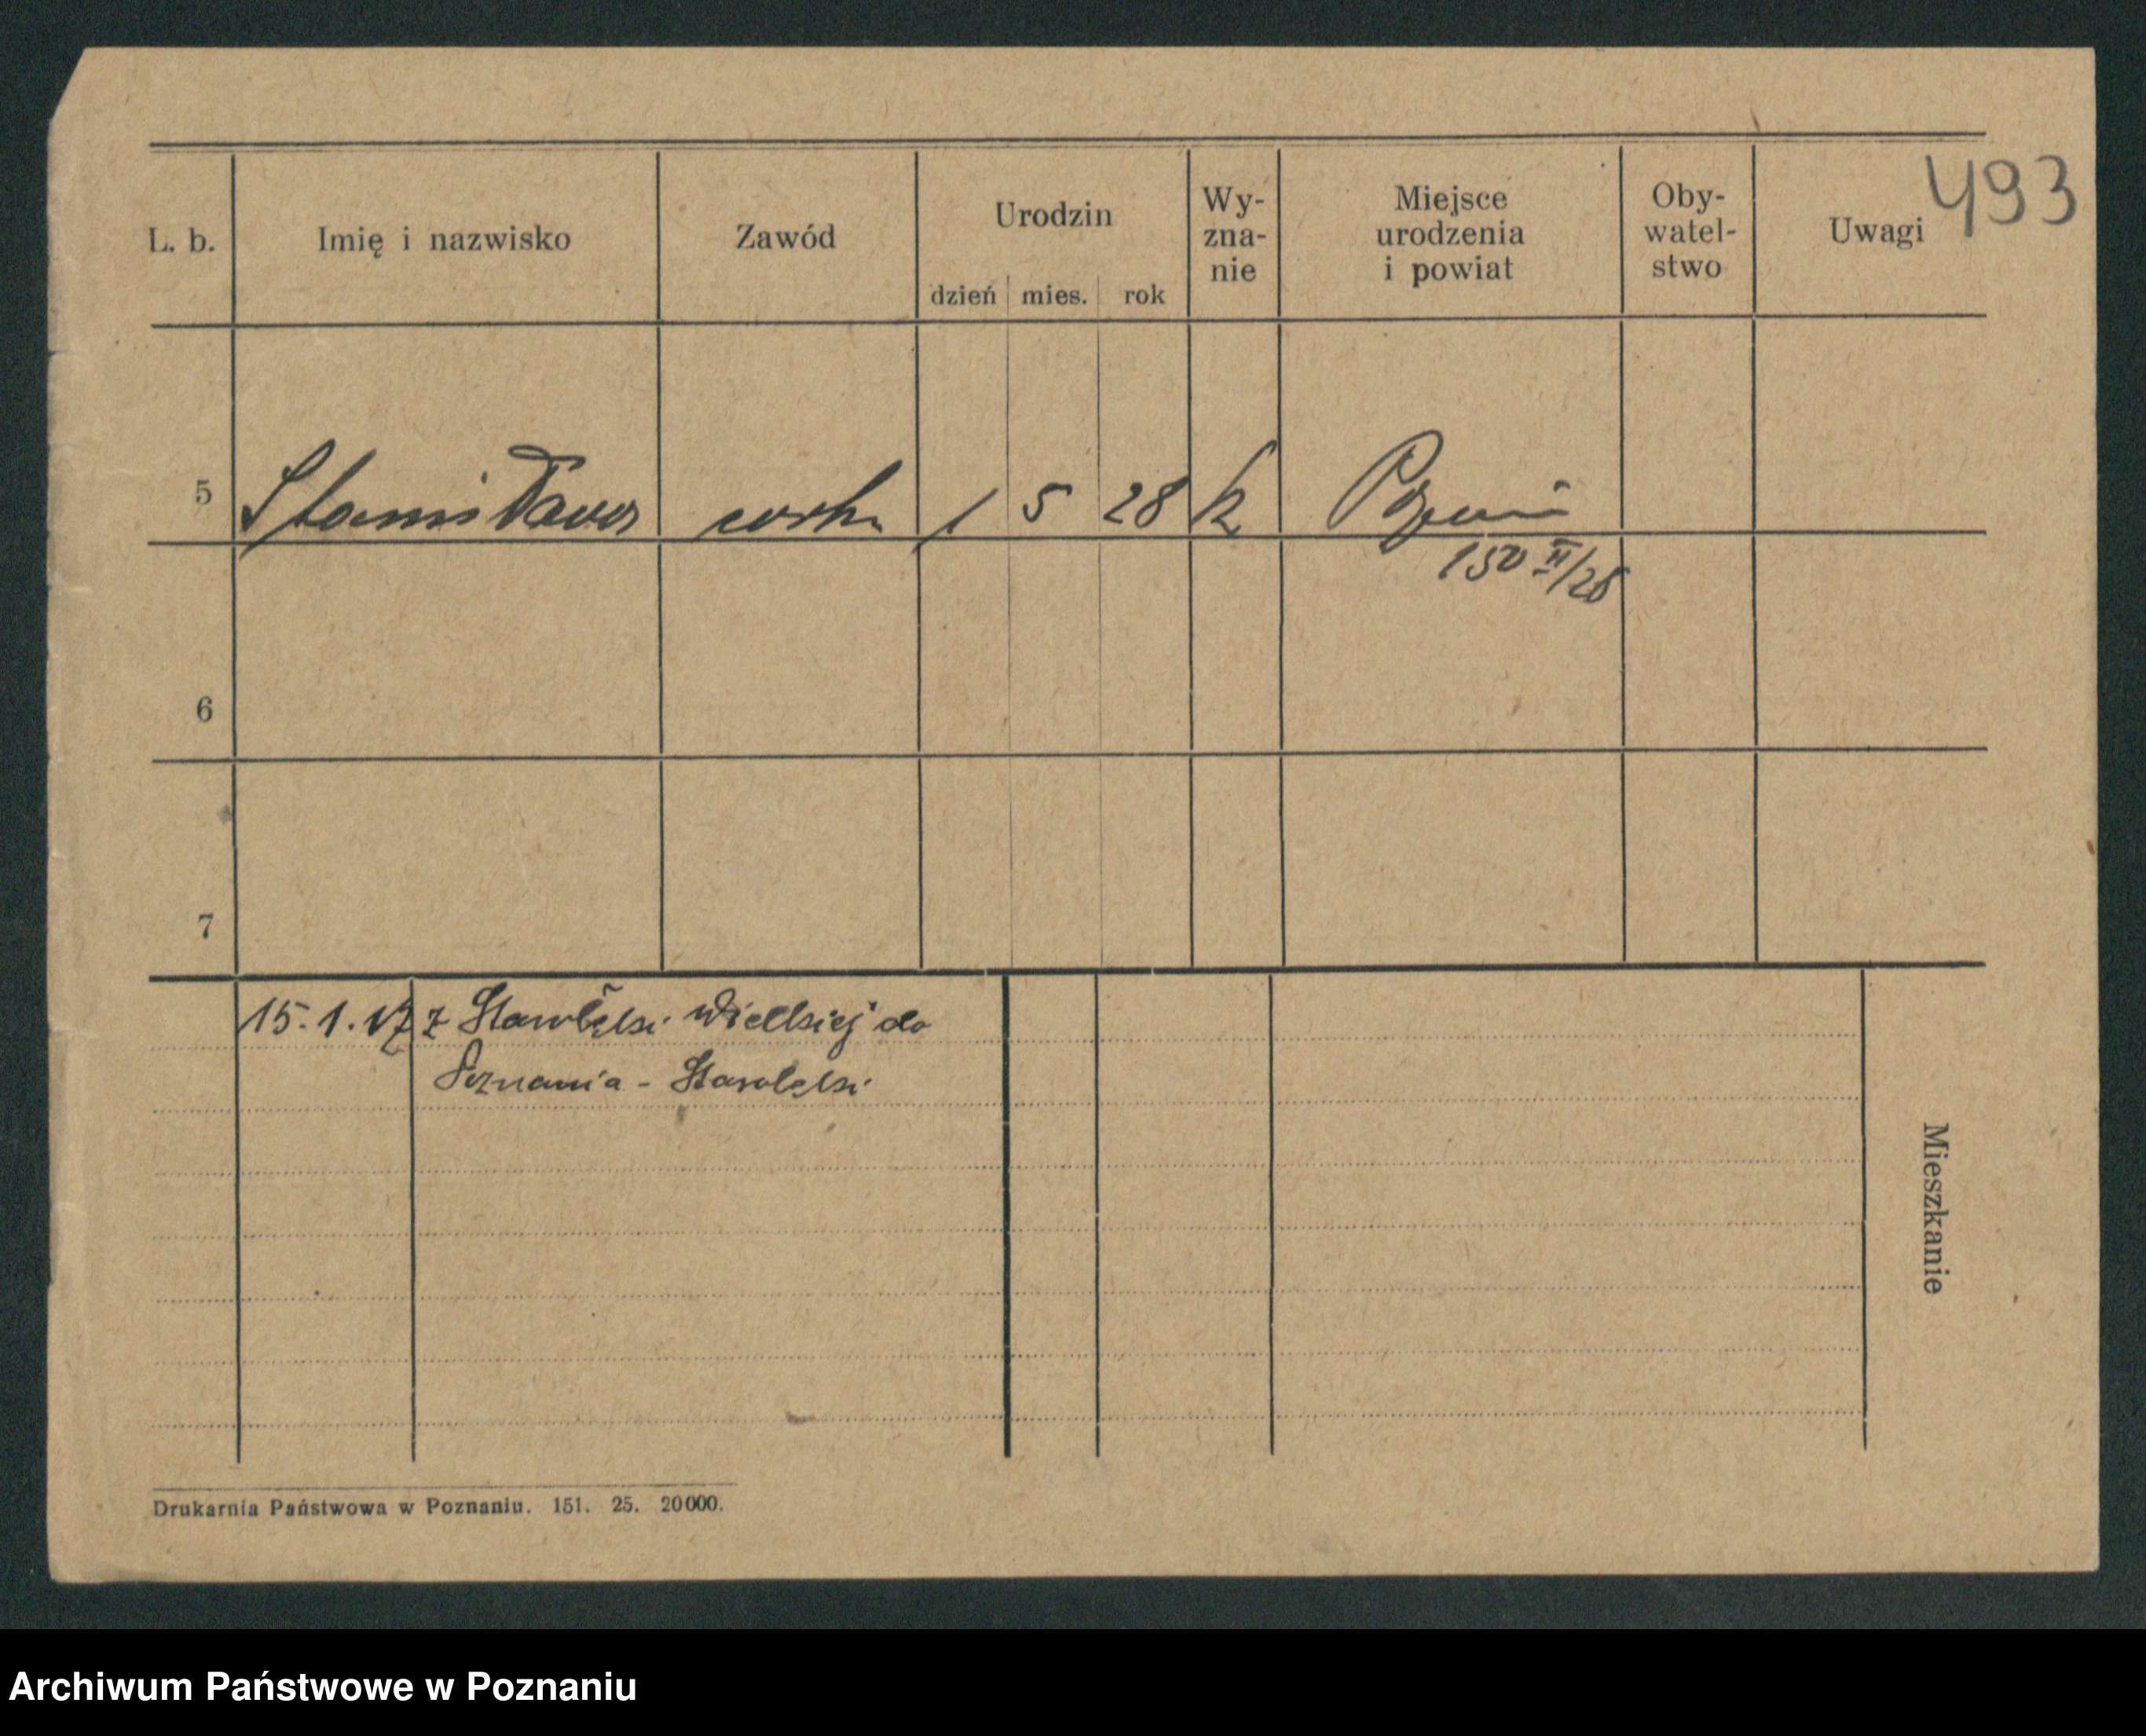 493
L. b.
Imię i nazwisko
Zawód
Urodzin
dzień mies. rok
Wy-
zna-
nie
Miejsce
urodzenia
i powiat
Oby-
watel-
stwo
Uwagi
5 Stanisława córka 1 5 28 k Poznań
150 II/28
6
7
15.1. z Starołęki Wielkiej do
Poznania - Starołęki
Mieszkanie
Drukarnia Państwowa w Poznaniu. 151. 25. 20000.
Archiwum Państwowe w Poznaniu